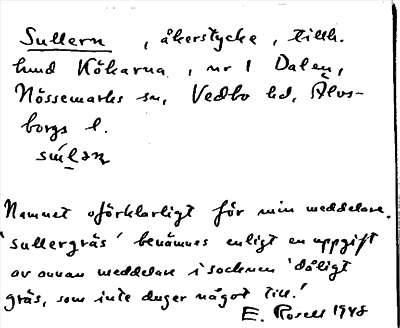 Sullern, åkerstycke, tillh.
hmd Kökarna, nr 1 Dalen,
Nössemarks sn, Vedbo hd, Älvs-
borgs l.
Namnet oförklarligt för min meddelare.
'sullergräs' benämnes enligt en uppgift
av annan meddelare i socknen 'dåligt
gräs, som inte duger något till.'
E. Rosell 1948